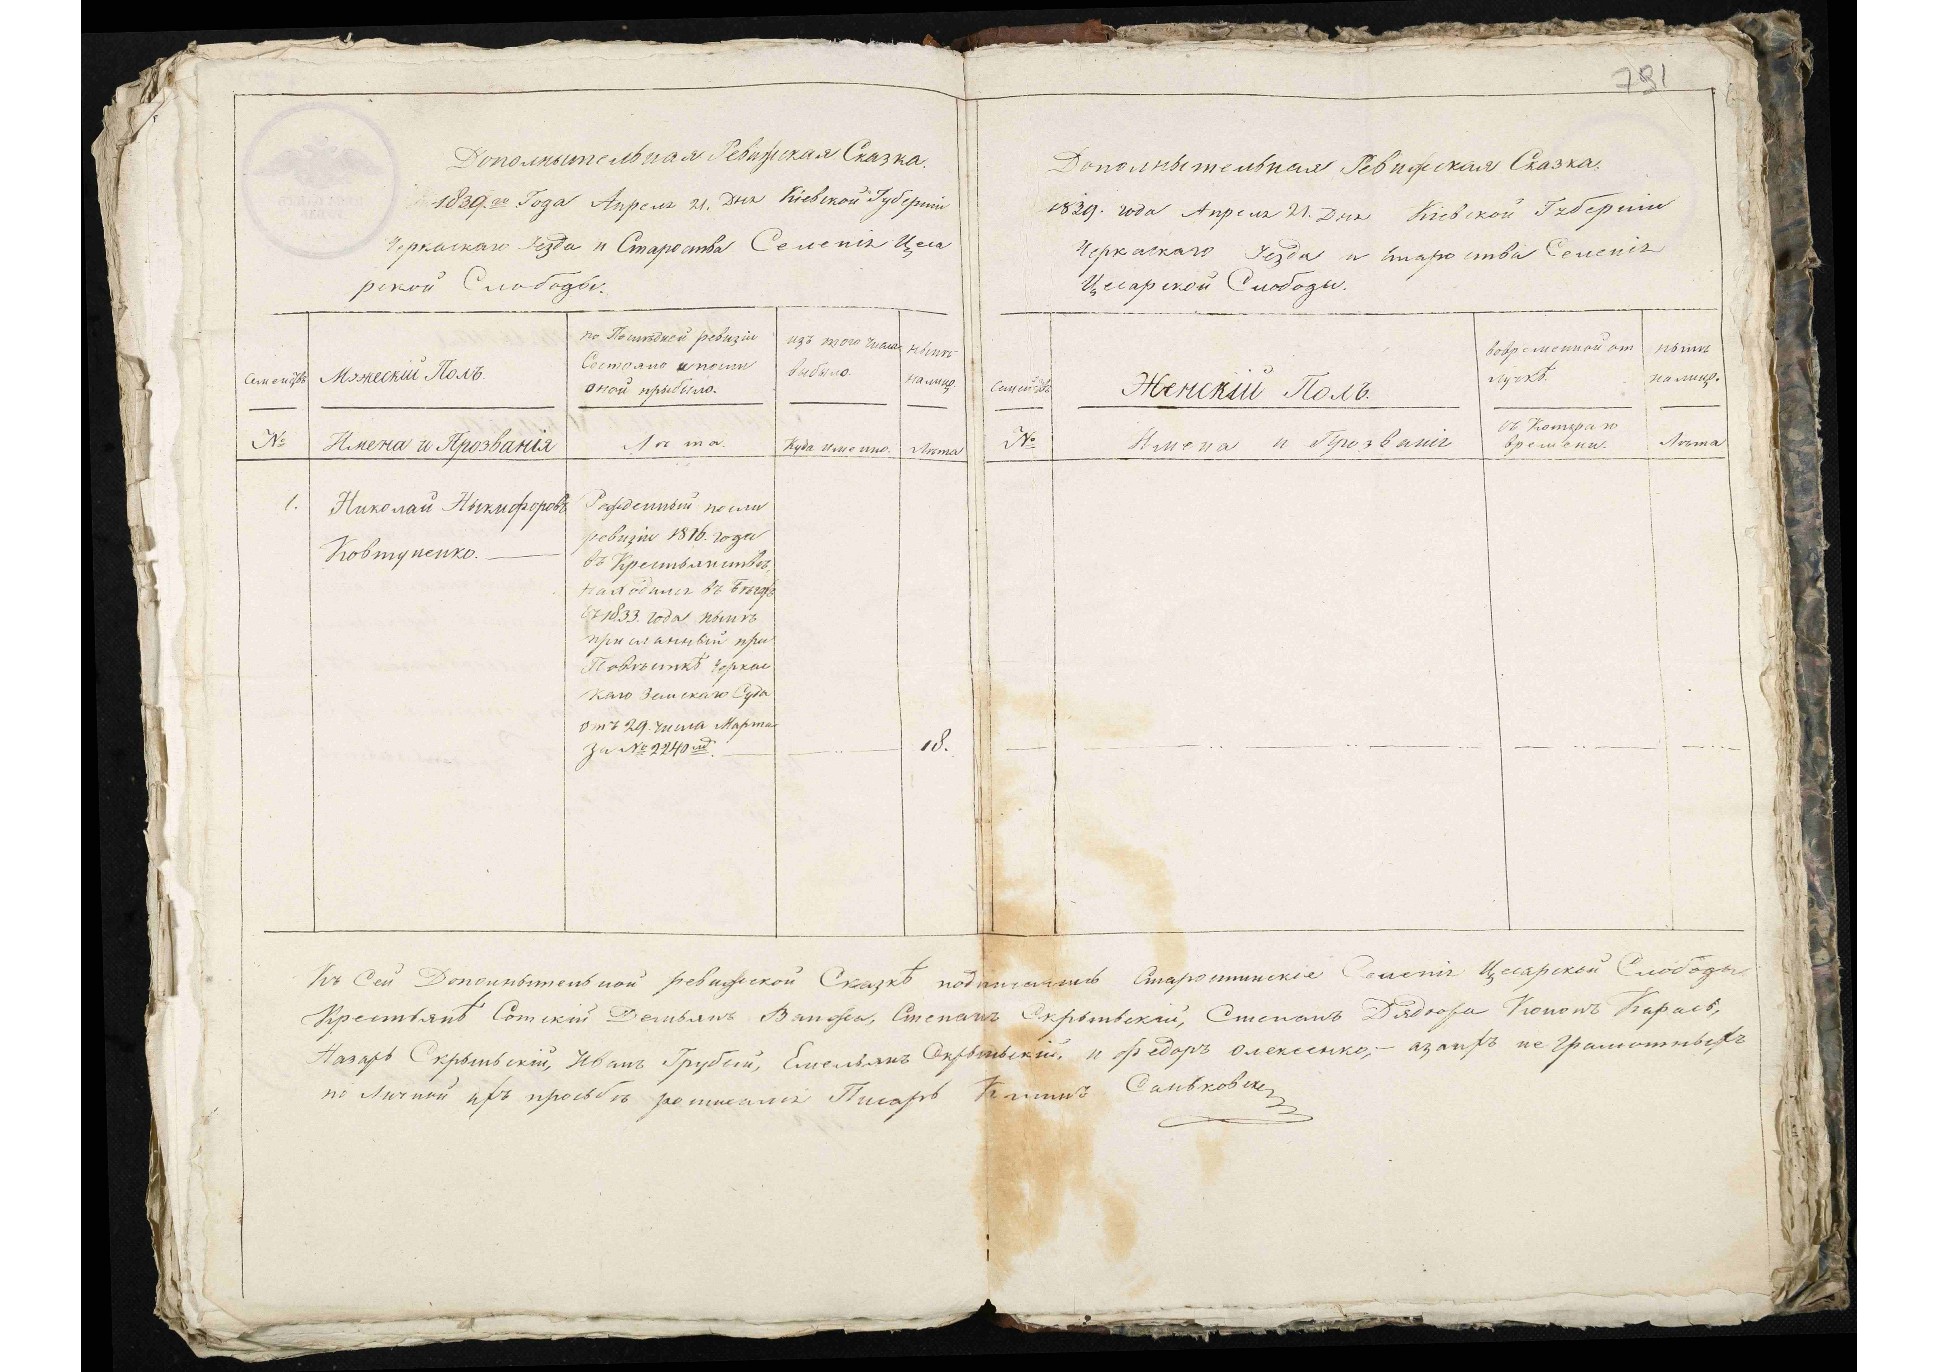 791
Дополнытельная Ревизская Сказка.
1839.го Года Апреля 21. Дня Кіевской Губерніи
Черкаскаго Уезда и Староства Селенія Цеса
рской Слободы.
Семействъ
Мужескій Полъ.
по Последней ревизіи
Состояло и после
оной прибыло.
изъ того числа
выбыло.
ныне
налицо.
№
Имена и Прозванія
Лета.
Куда именно.
Лета
1.
Николай Ныкифоровъ
Ковтуненко.
Рожденный после
ревизіи 1816. года
въ Крестьянстве,
находился въ бегахъ
съ 1833. года ныне
присланный при
Повесткѣ Черкас
каго Земскаго Суда
отъ 29. числа Марта
За № 2240мъ.
18.
Дополнытельная Ревизская Сказка.
1839. года Апреля 21. Дня Кіевской Губерніи
Черкаскаго Уезда и староства Селенія
Цесарской Слободы.
Семействъ
Женскій Полъ.
вовременной от
лучкѣ.
ныне
налицо.
№
Имена и Прозванія
съ Котораго
времени.
Лета
Къ Сей Дополнытельной ревизской Сказкѣ подписались Старостинскіе Селенія Цесарской Слободы
Крестьянѣ Сотскій Демьянъ Степанъ Скрыпьскій, Степанъ Дядюра Кононъ Карась,
Назаръ Скрыпьскій, Иванъ Грубый, Емельянъ Скрыпьскій, и Федоръ Олексенко,— азаихъ не Грамотныхъ
по Личной ихъ просьбе росписался Писаръ